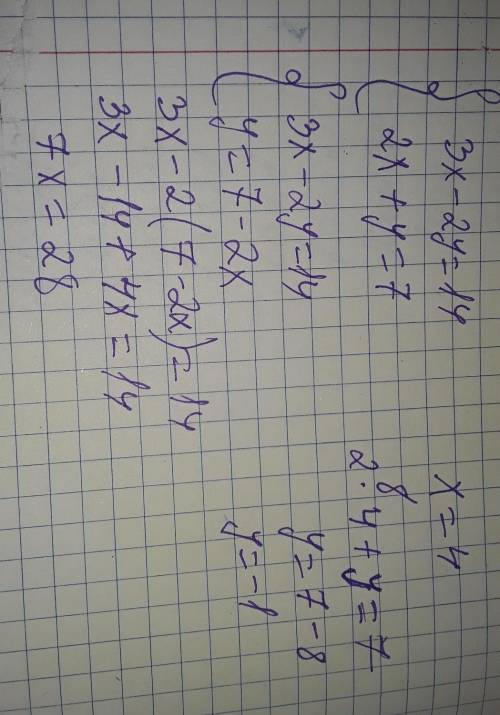 { 3x - 2y = 14
2x + y = 7
{ 3x - 2y = 14
y = 7 - 2x
3x - 2(7 - 2x) = 14
3x - 14 + 4x = 14
7x = 28
x = 4
8
2 · 4 + y = 7
y = 7 - 8
y = -1